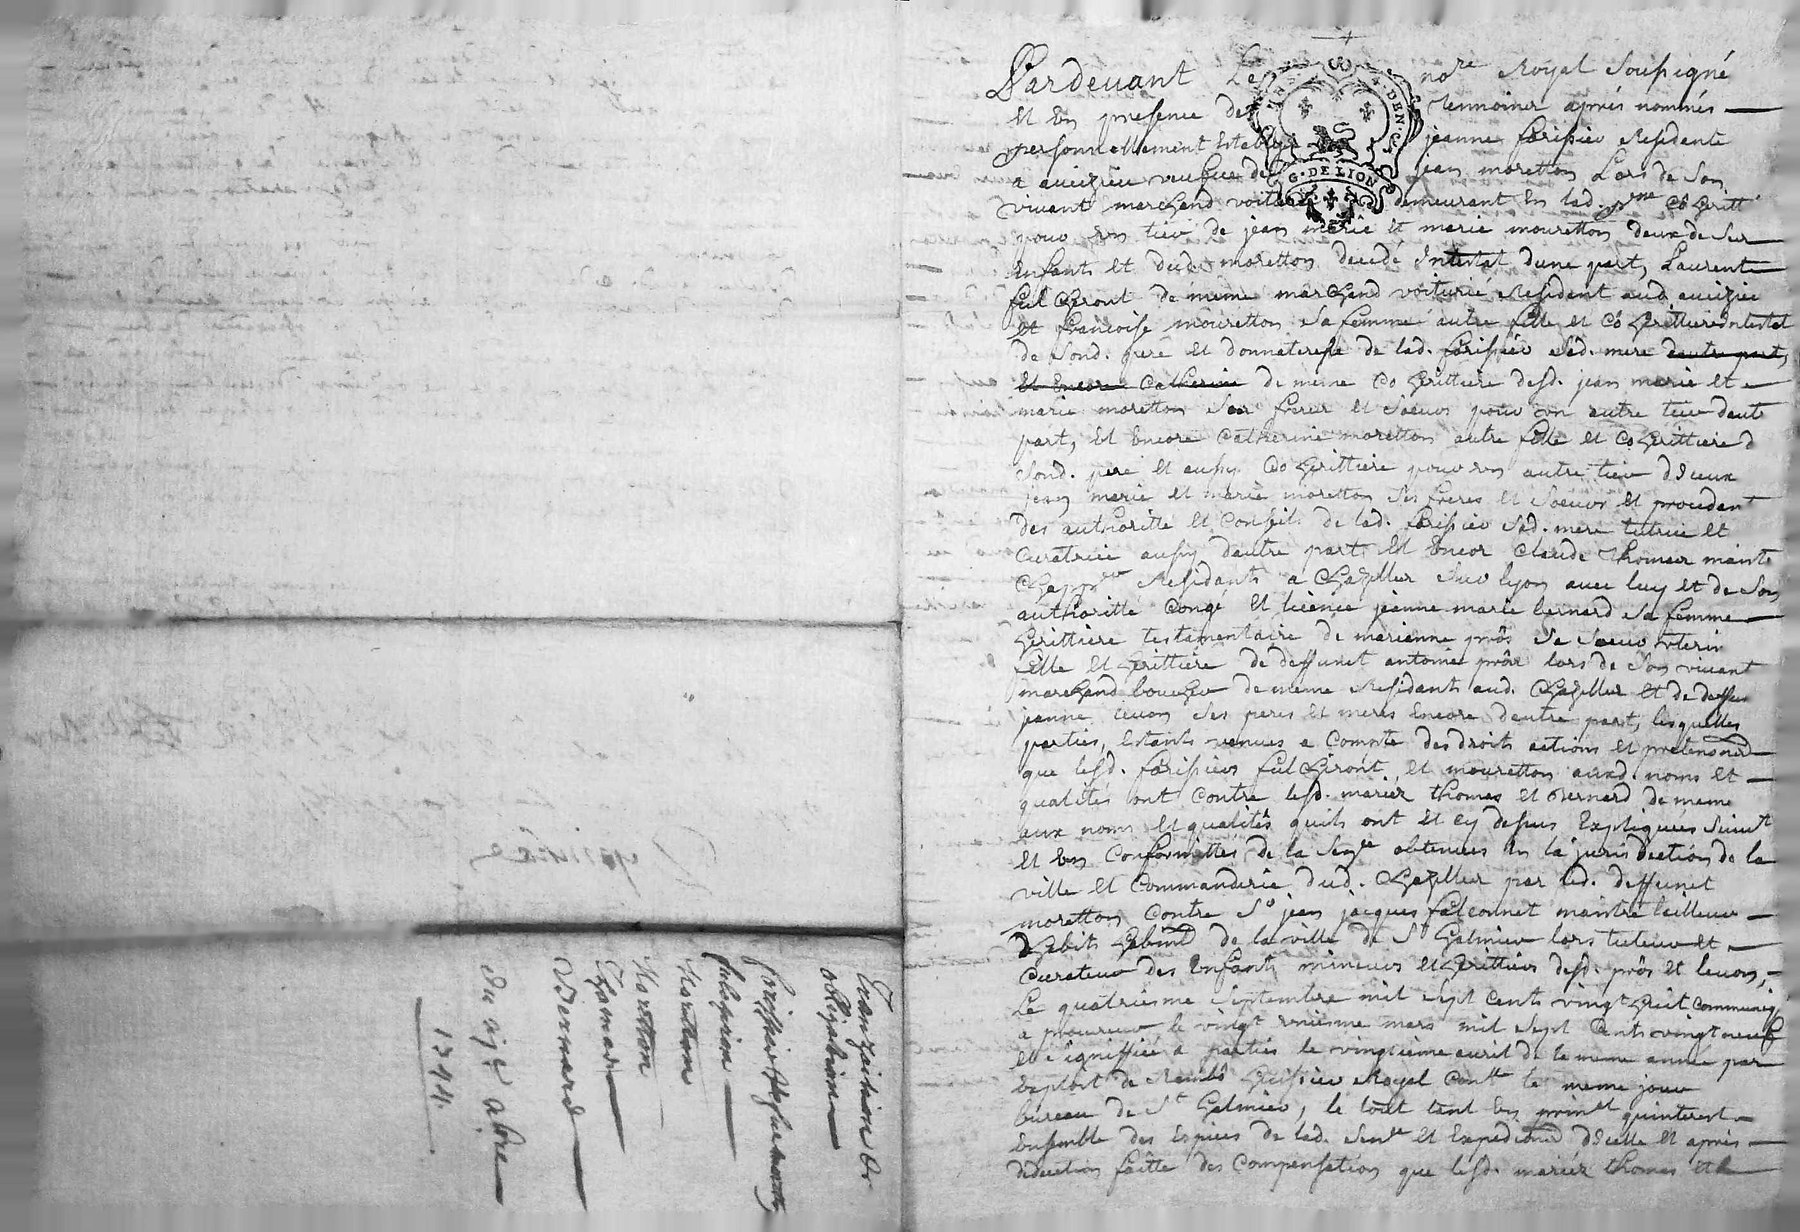 Pardevant Le nore Royal Soussigné
Et En presence des temmoines aprés nommés
personnellement Establye jeanne forissier Residante
a aveizieu veufve de jean moretton Lors de Son
vivant marchand voiturié demeurant En lad. coheritt
pour un tier de jean marie et marie mouretton deux de Ses
Enfants Et dud. moretton decedé Intestat dune part, Laurent
fulchiront de meme marchand voiturié Resident aud. aveizieu
Et francoise mouretton Sa femme autre fille et Co herittiere Intestat
de Sond. pere Et donnateresse de lad. forissier Sad. mere dautre part,
Et Encore Catherine de meme Co herittiere desd. jean marie Et
marie moretton Ses freres Et Soeurs pour un autre tier dautre
part, Et Encore Catherine moretton autre fille et Coherittiere d
Sond. pere Et aussy Co herittiere pour un autre tier diceux
jean marie Et marie moretton Ses freres Et Soeurs Et procedant
des authoritte Et Conseils de lad. forissier Sad. mere tutrice Et
Curatrice aussy dautre part, Et Encor Claude Thomas maitre
Chapp.er Residants a Chazelles Sur lyon avec luy et de Son
authoritte Congé Et licence jeanne marie bernard Sa femme
herittiere testamentaire de marianne prôs Sa Soeur uterine
fille Et herittiere de deffunct antoine prôs lors de Son vivant
marchand boucher de meme Residants aud. Chazelles Et de deffun
jeanne Ses peres Et meres Encore dautre part, lesquelles
parties, Estants venues a Compte des droits actions Et pretensions
que lesd. forissier fulchiront, Et mouretton auxd. noms Et
qualités ont Contre lesd. mariéz thomas Et Bernard de meme
aux noms Et qualités quils ont Et cy dessus Expliquées Suivt
Et En Conformittés de la Sence obtenues En la jurisdiction de la
ville Et Commanderie dud. Chazelles par led. deffunct
moretton Contre Sr jean jacques falconnet maitre tailleur
dhabits habitt de la ville de St Galmier lors tuteur Et
Curateur des Enfants mineurs Et herittiers desd. prôs Et
Le quatriesme Septembre mil Sept Cents vingt huit Communiqé
a procureur le vingt uniesme mars mil Sept Cents vingt neuf
Et Signiffiée a parties le vingtieme avril de la meme année par
Exploit de huissier Royal Contt le meme jour
bureau de St Galmier, le tout tant En prinal quinterest
Ensemble des Espices de lad. Sence Et Expedions dicelle Et aprés
deduction faitte des Compensation que lesd. mariéz thomas Et B
G. DE LION
Tranzaition Et
obligation
forissier
fulchiron
Moretton
Moretton
Thomas
Bernard
du abre
1744.